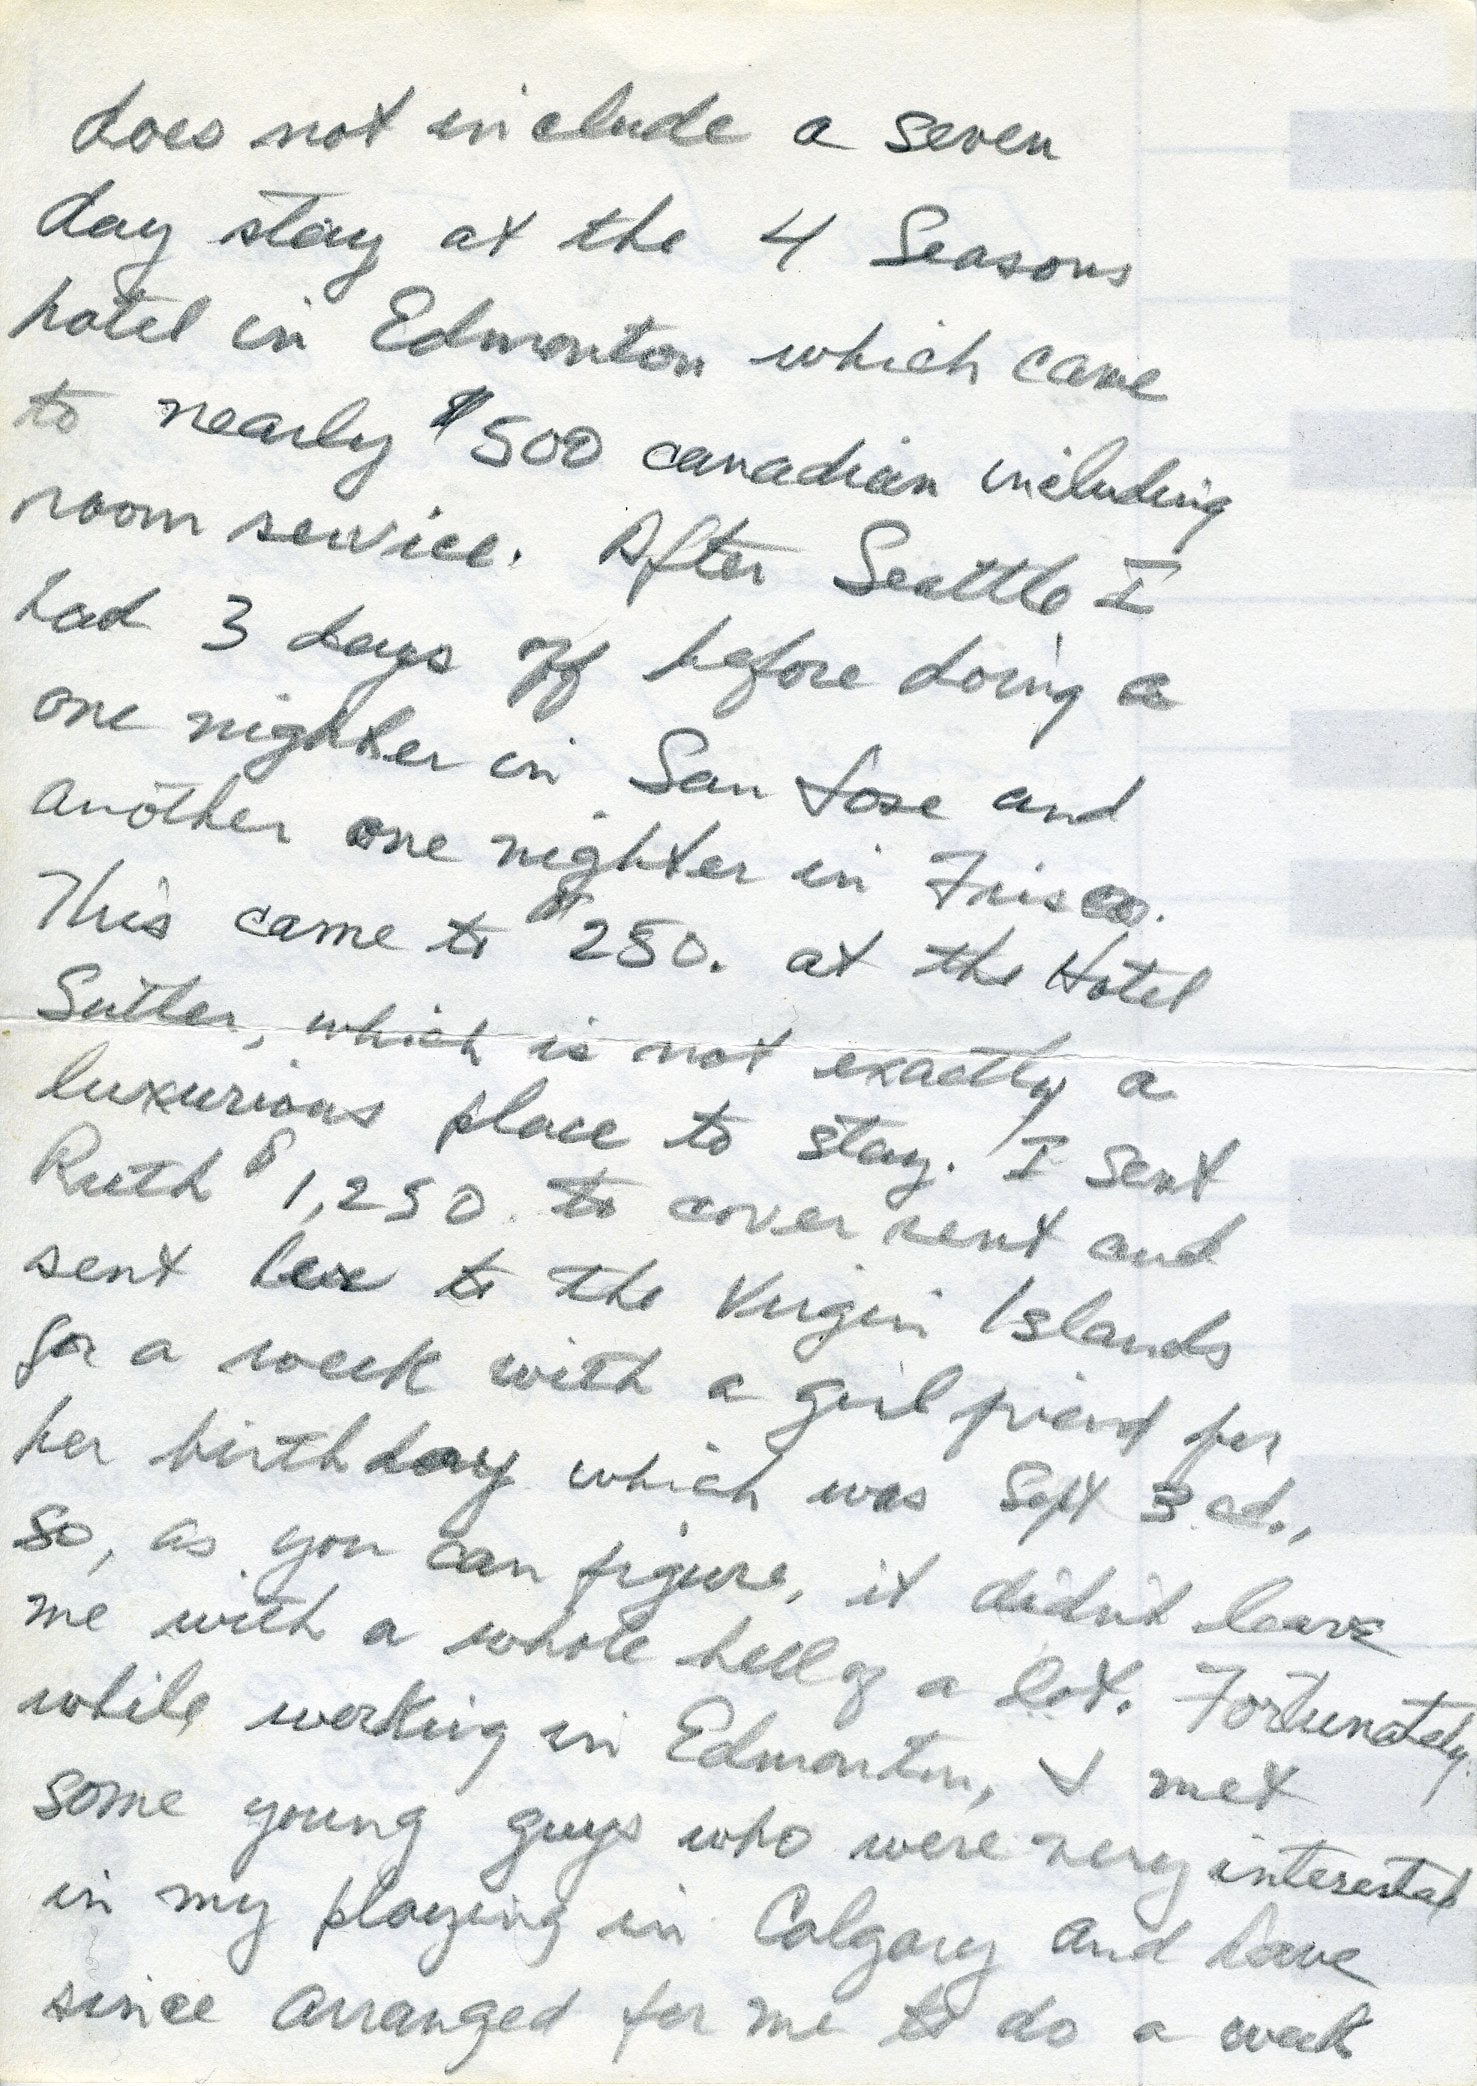 does not include a seven
day stay at the 4 Seasons
hotel in Edmonton which came
to nearly $500 canadian including
room service. After Seattle I
had 3 days off before doing a
one nighter in San Jose and
another one nighter in Frisco.
This came to $250. at the Hotel
Sutter, which is not exactly a
luxurious place to stay. I sent
Ruth $1,250 to cover rent and
sent her to the Virgin Islands
for a week with a girl friend for
her birthday which was Sept 3rd.,
so, as you can figure, it didn't leave
me with a whole hell of a lot. Fortunately,
while working in Edmonton, I met
some young guys who were very interested
in my playing in Calgary and have
since arranged for me to do a week